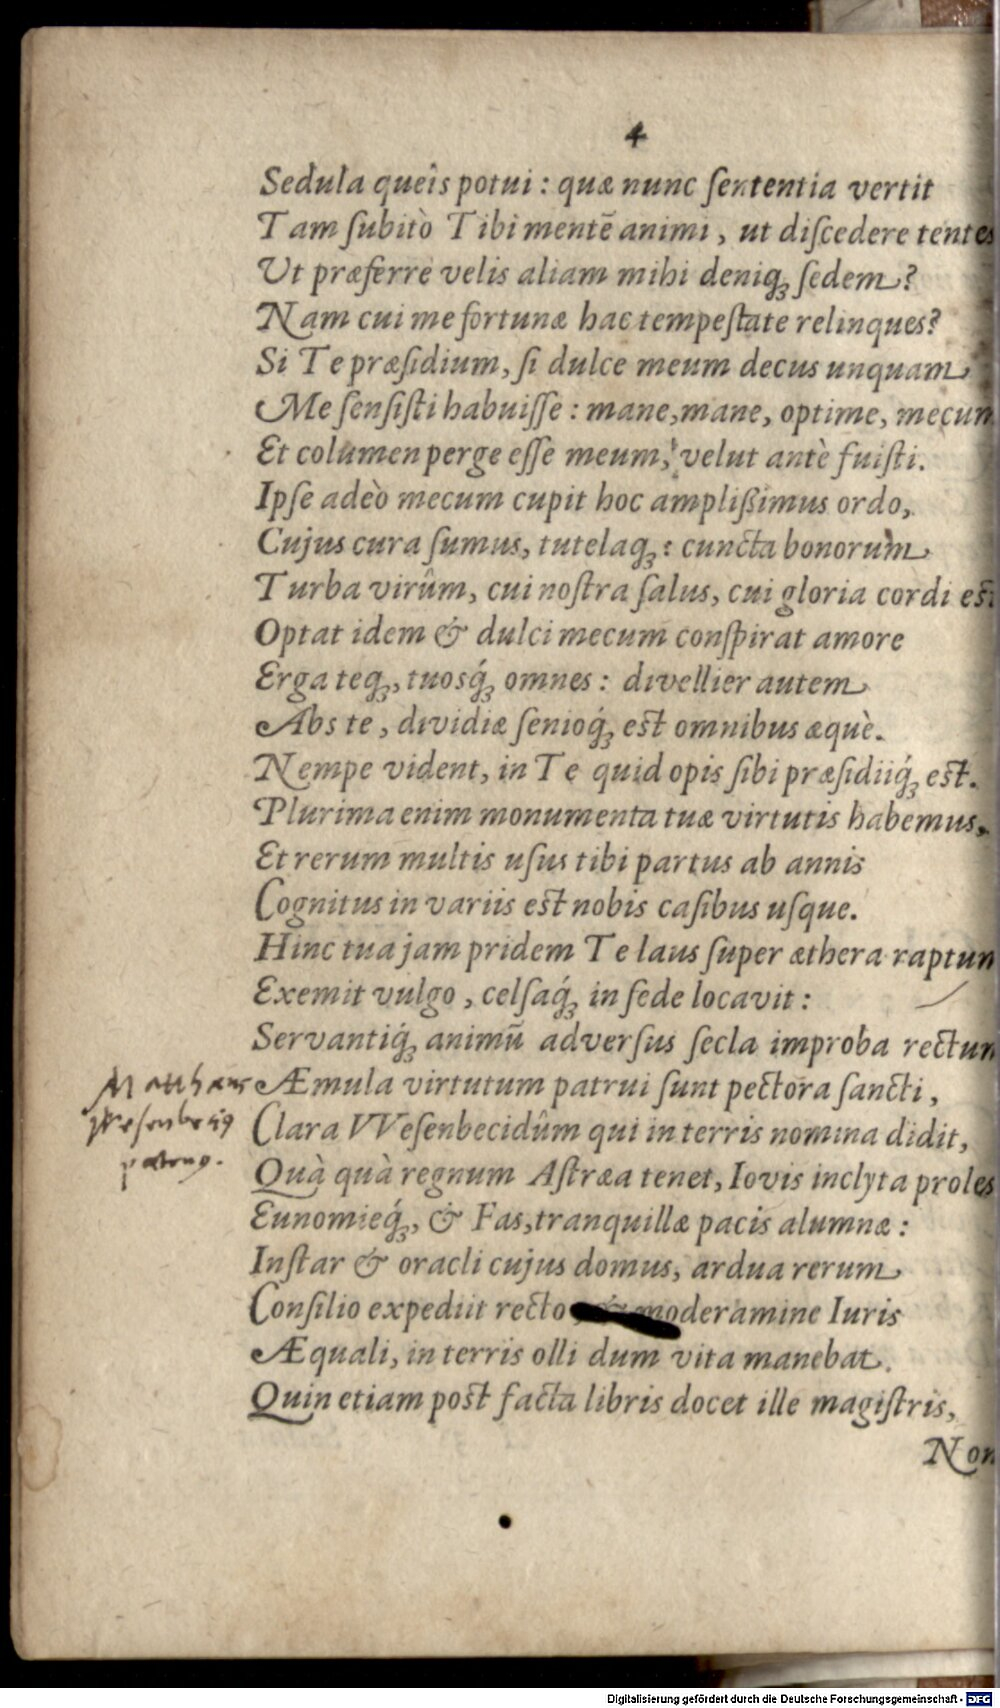 4
Sedula queîs potui : quæ nunc ſententia vertit
Tam ſubitò Tibi mentē animi, ut diſcedere tentes
Ut præferre velis aliam mihi deniq́ꝫ ſedem?
Nam cui me fortunæ hac tempeſtate relinques?
Si Te præſidium, ſi dulce meum decus unquam
Me ſenſiſti habuiſſe : mane, mane, optime, mecum
Et columen perge eſſe meum, velut antè fuiſti.
Ipſe adeò mecum cupit hoc amplißimus ordo,
Cujus cura ſumus, tutelaq́ꝫ : cuncta bonorum
Turba virûm, cui noſtra ſalus, cui gloria cordi eſt
Optat idem & dulci mecum conſpirat amore
Erga teq́ꝫ, tuosq́ꝫ omnes : divellier autem
Abs te, dividiæ ſenioq́ꝫ eſt omnibus æquè.
Nempe vident, in Te quid opis ſibi præſidiiq́ꝫ eſt.
Plurima enim monumenta tuæ virtutis habemus,
Et rerum multis uſus tibi partus ab annis
Cognitus in variis eſt nobis caſibus uſque.
Hinc tua jam pridem Te laus ſuper æthera raptum
Exemit vulgo, celſaq́ꝫ in ſede locavit :
Servantiq́ꝫ animū adverſus ſecla improba rectum
Matthæus
Æmula virtutum patrui ſunt pectora ſancti,
Weſenbecig
Clara VVeſenbecidûm qui in terris nomina didit,
patrug.
Quà quà regnum Aſtræa tenet, Iovis inclyta proles
Eunomieq́ꝫ, & Fas, tranquillæ pacis alumnæ :
Inſtar & oracli cujus domus, ardua rerum
Conſilio expediit recto, & moderamine Iuris
Æquali, in terris olli dum vita manebat.
Quin etiam poſt facta libris docet ille magiſtris,
Non
Digitalisierung gefördert durch die Deutsche Forschungsgemeinschaft - DFG